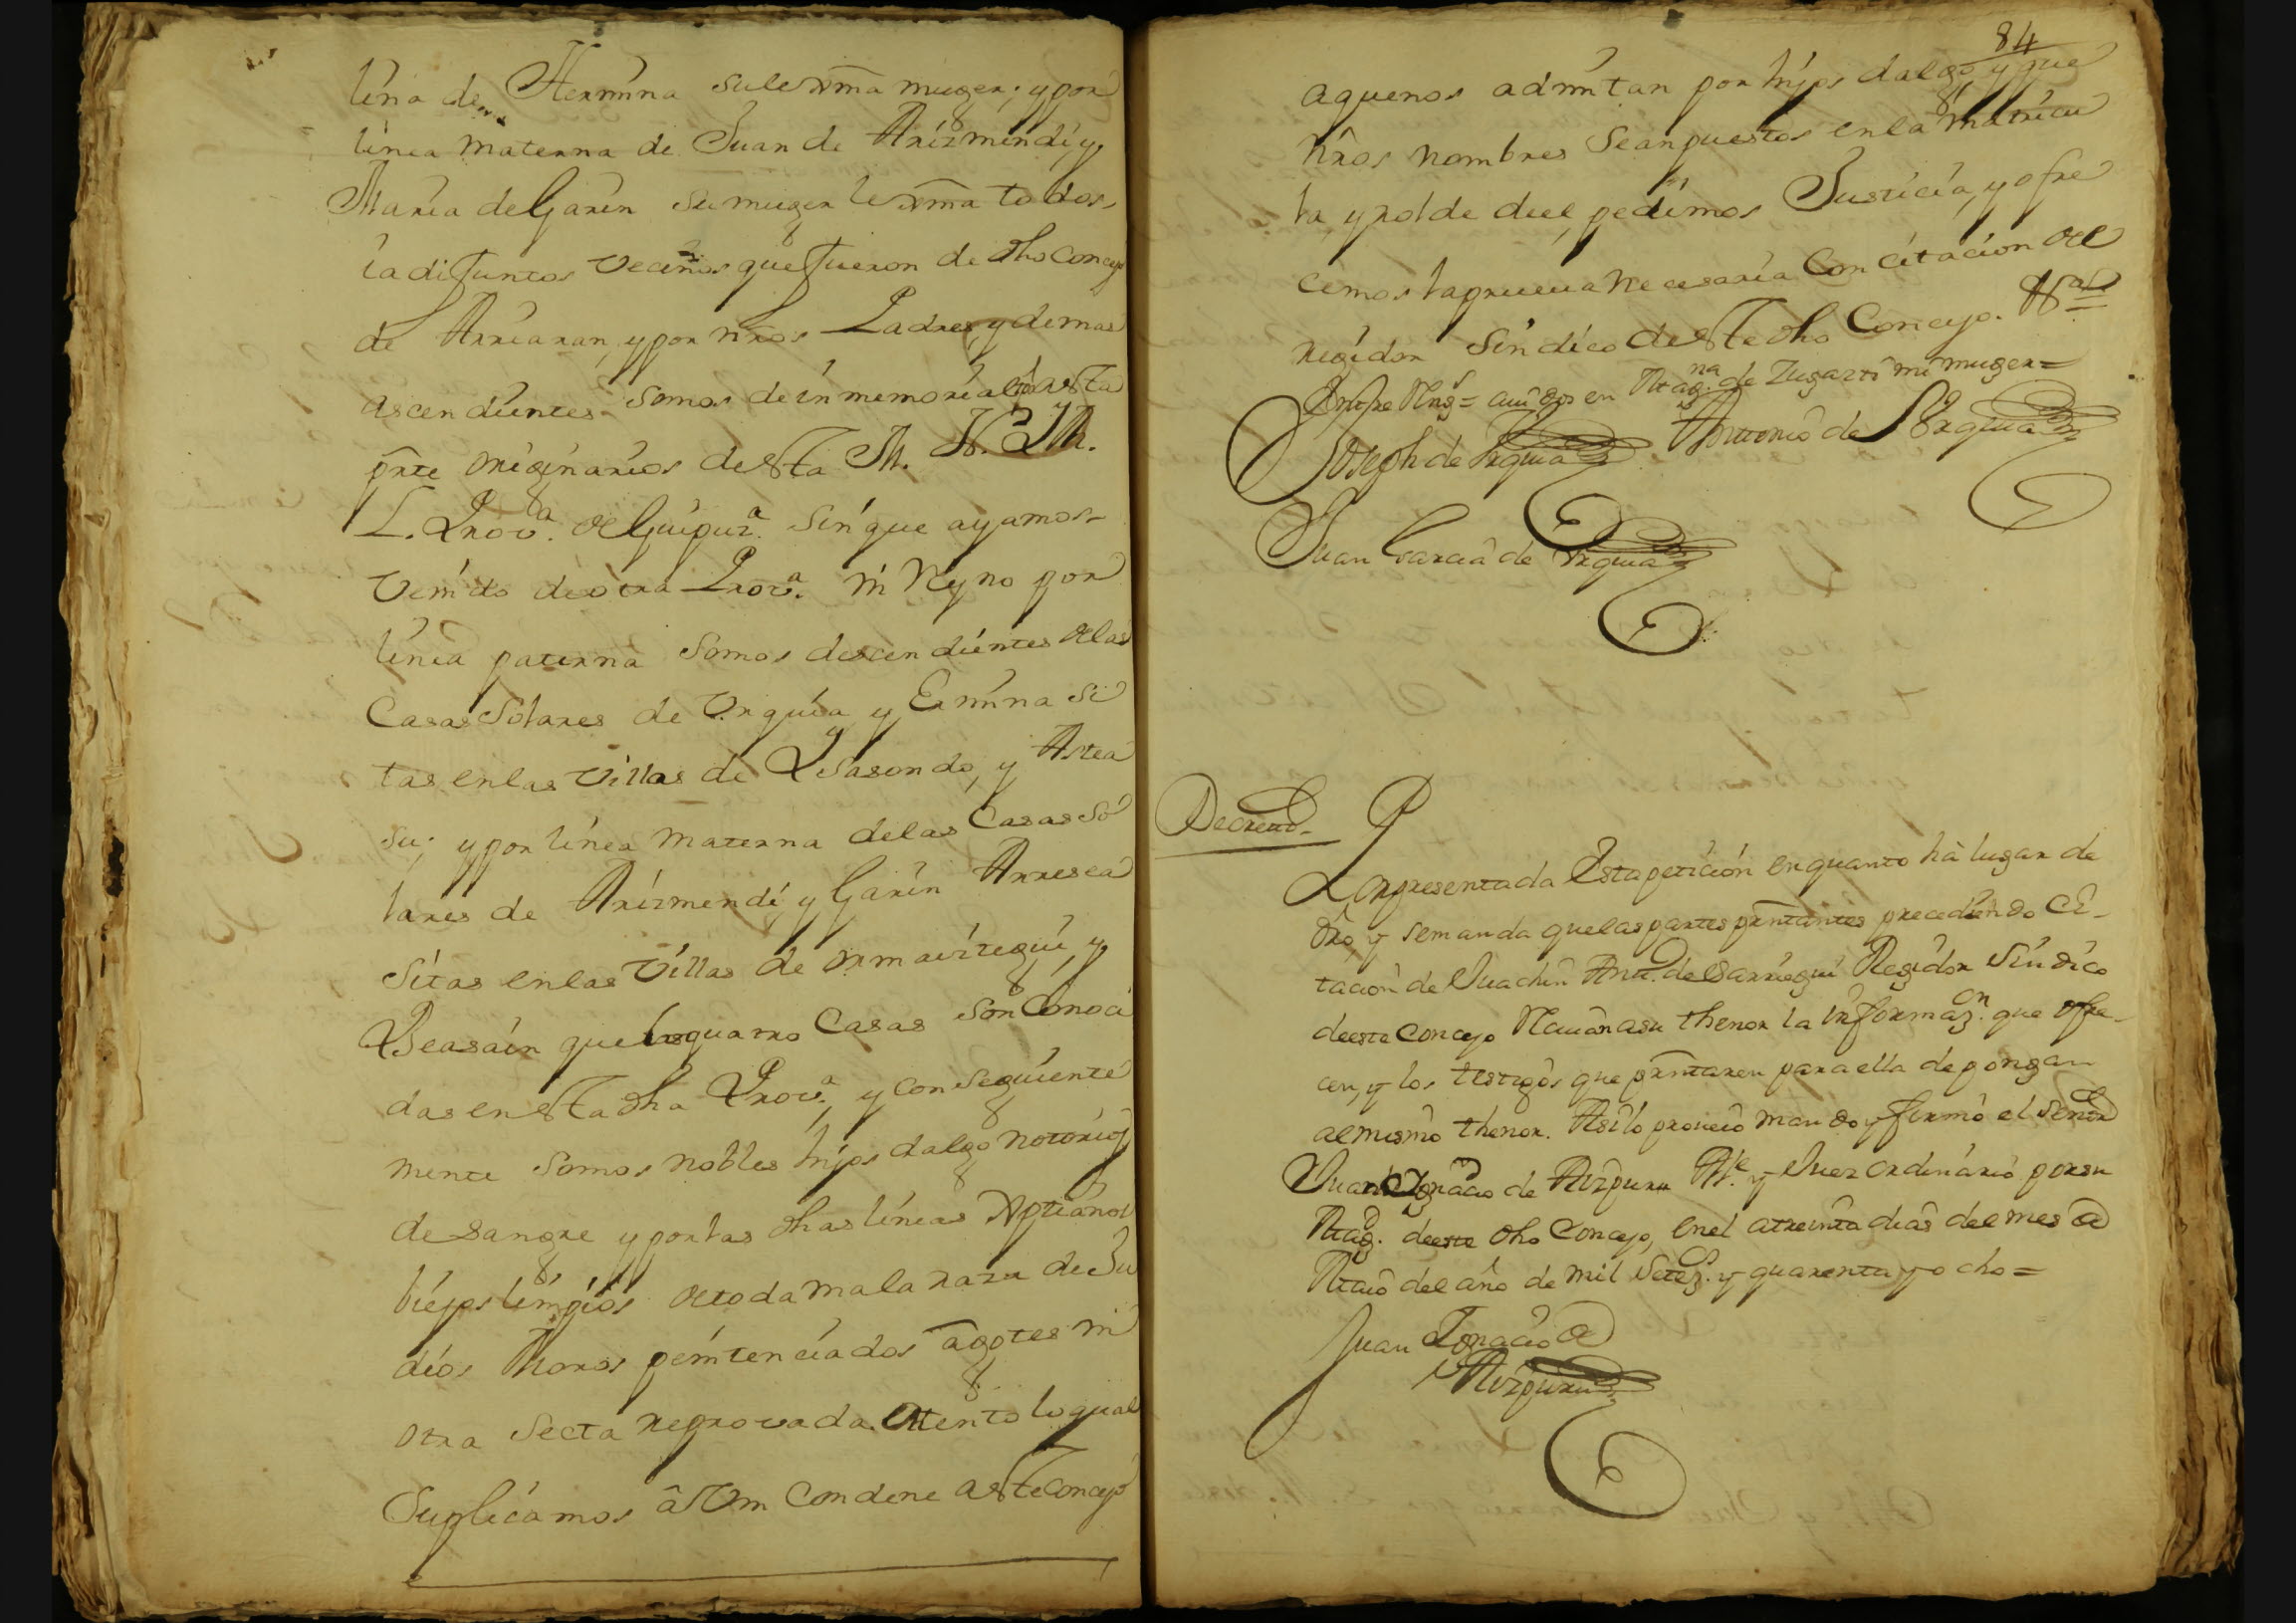 lina de Hermina su lexma muger; y por
linea materna de Juan de Arizmendi, y
Maria de Garin su muger lexma todos
ia difuntos vecinos que fueron de dho Concejo
de Arriaran, y por nros Padres, y demas
ascendientes somos de inmemorial asta
prnte originarios desta M. N. Y M.
L. Prova. de Guipuza. sin que ayamos
venido de otra Prova. ni Reyno por
linea paterna somos descendientes de las
Casas Solares de Vrquia, y Ermina si
tas en las Villas de Ysasondo, y Astea
su; y por linea materna de las Casas So
lares de Arizmendi, y Garin Arresea
sitas en las Villas de Ormaiztegui, y
Beasain que las quatro Casas son Conoci
das en esta dha Prova. y conseguiente
mente somos nobles hijos dalgo notorios
de sangre y por las dhas lineas Xptianos
viejos limpios de toda mala raza de Ju
dios Moros penitenciados agotes ni
otra secta reprovada. Atento lo qual
Suplicamos â Vm condene a este Concejo
84
a que nos admitan por hijos dalgo, y que
nros nombres sean puestos en la matricu
la, y rolde de el, pedimos Justicia, y ofre
cemos la prueua necesaria Con citacion del
regidor Sindico de este dho Concejo.
Entre Rngs = auidos en Magna. de Zugazti mi muger =
Joseph de Vrquia Antonio de Vrquia
Juan Garcia de Vrquia
Decreto
Por presentada Esta peticion en quanto hà lugar de
dro y se manda que las partes prntantes precediendo Ci-
tacion de Juachin Anto. de Barriegui Regidor Sindico
de este Concejo Reciuan a su thenor la Informazon. que ofre-
cen, y los testigos que prntaren para ella depongan
al mismo thenor. Asi lo proueió mando y firmò el Señor
Juan Ignacio de Aizpuru Alle. y Juez ordinario por su
Magd. de este dho Concejo, en el a treinta dias del mes de
Maio del año de mil Setezs. y quarenta y ocho =
Juan Ignacio de
Aizpuru